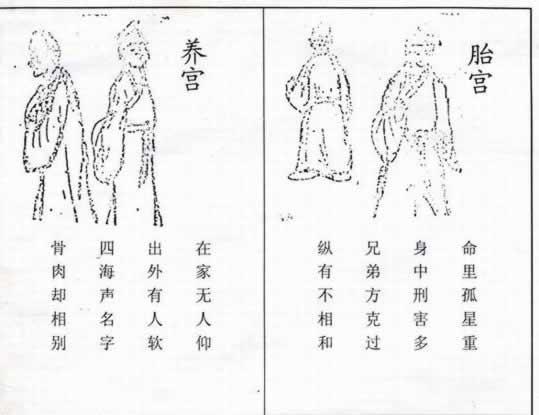 胎宫
命里孤星重
身中刑害多
兄弟方克过
纵有不相和
养宫
在家无人仰
出外有人软
四海声名字
骨肉却相别